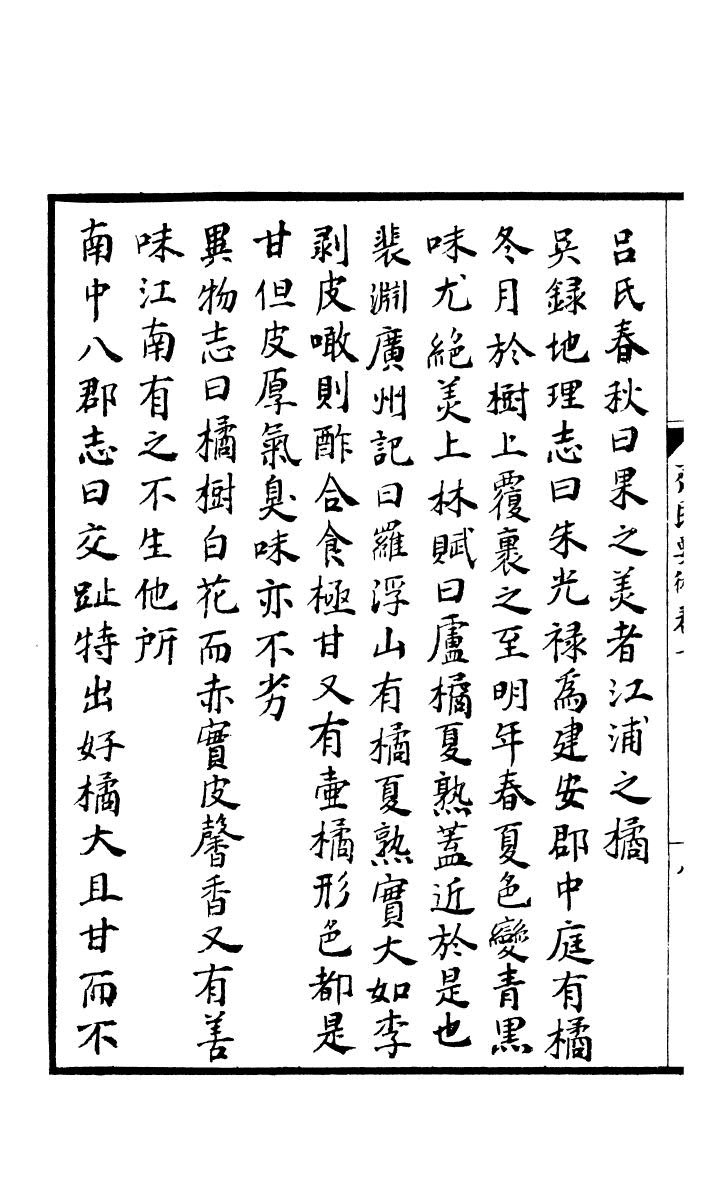 呂氏春秋曰果之美者江浦之橘
吳録地理志曰朱光禄為建安郡中庭有橘
冬月於樹上覆裹之至明年春夏色變青黑
味尤絕美上林賦曰盧橘夏熟蓋近於是也
裴淵廣州記曰羅浮山有橘夏熟實大如李
剥皮噉則酢合食極甘又有壷橘形色都是
甘但皮厚氣臭味亦不劣
異物志曰橘樹白花而赤實皮馨香又有善
味江南有之不生他所
南中八郡志曰交趾特出好橘大且甘而不